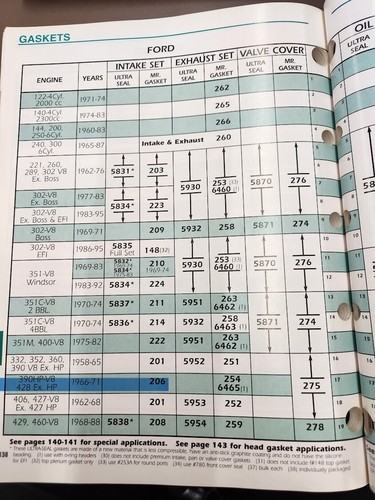 GASKETS
FORD
OIL
INTAKE SET EXHAUST SET VALVE COVER
ENGINE YEARS ULTRA SEAL MR. GASKET ULTRA SEAL MR. GASKET ULTRA SEAL MR. GASKET ULTRA SEAL
122-4Cyl. 2000 cc 1971-74 262 1
140-4Cyl. 2300cc 1974-83 265 2
144, 200, 250-6Cyl. 1960-83 266 3
240, 300 6Cyl. 1965-87 Intake & Exhaust 260 4
221, 260, 289, 302 V8 Ex. Boss 1962-76 5831* 203
5930 253 (33) 6460 (1) 5870 276
302-V8 Ex. Boss 1977-83 5834* 223
302-V8 Ex. Boss & EFI 1983-95
302-V8 Boss 1969-71 209 5932 258 5871 274 9
302-V8 EFI 1986-95 5835 Full Set 148(32)
351-V8 Windsor 1969-83 5832* 5834* 210 1969-74 5930 253 (33) 6460 (1) 5870 276
1983-92 5834* 224
351C-V8 2 BBL. 1970-74 5837* 211 5951 263 6462 (1) 13
351C-V8 4BBL 1970-74 5836* 214 5932 258 6463 (1) 5871 274 14
351M, 400-V8 1975-82 222 5951 263 6462 (1) 15
332, 352, 360, 390 V8 Ex. HP 1958-65 201 5952 251 16
390HP-V8 428 Ex. HP 1966-71 206 254 6465(1) 275 17
406, 427-V8 Ex. 427 HP 1962-68 201 5953 252 18
429, 460-V8 1968-88 5838* 208 5954 259 278 19
See pages 140-141 for special applications. See page 143 for head gasket applications.
* These ULTRA-SEAL gaskets are made of a new material that is less compressible, have an anti-stick graphite coating and do not have the silicone
beading. (1) use with oval headers (30) does not include premium intake, pan or valve cover gaskets. (31) does not include
for EFI (32) top plenum gasket only (33) use #253A for round ports (34) use #780 front cover seal (37) bulk each (39) individually packaged
138